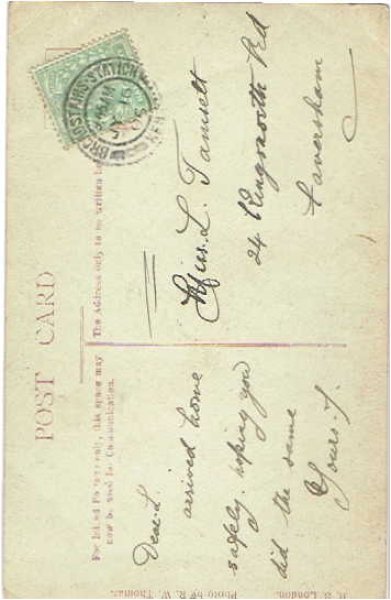 POST CARD
For Inland Postage only, this space may
now be used for Communication.
The Address only to be written he
BROADSTAIRS STATION
Dear L.
arrived home
safely. hoping you
did the same
Yours. J.
Miss. L. Tamsett
24 Kingsnorth Rd
Faversham
R. S London.
Photo by R. W. Thomas.